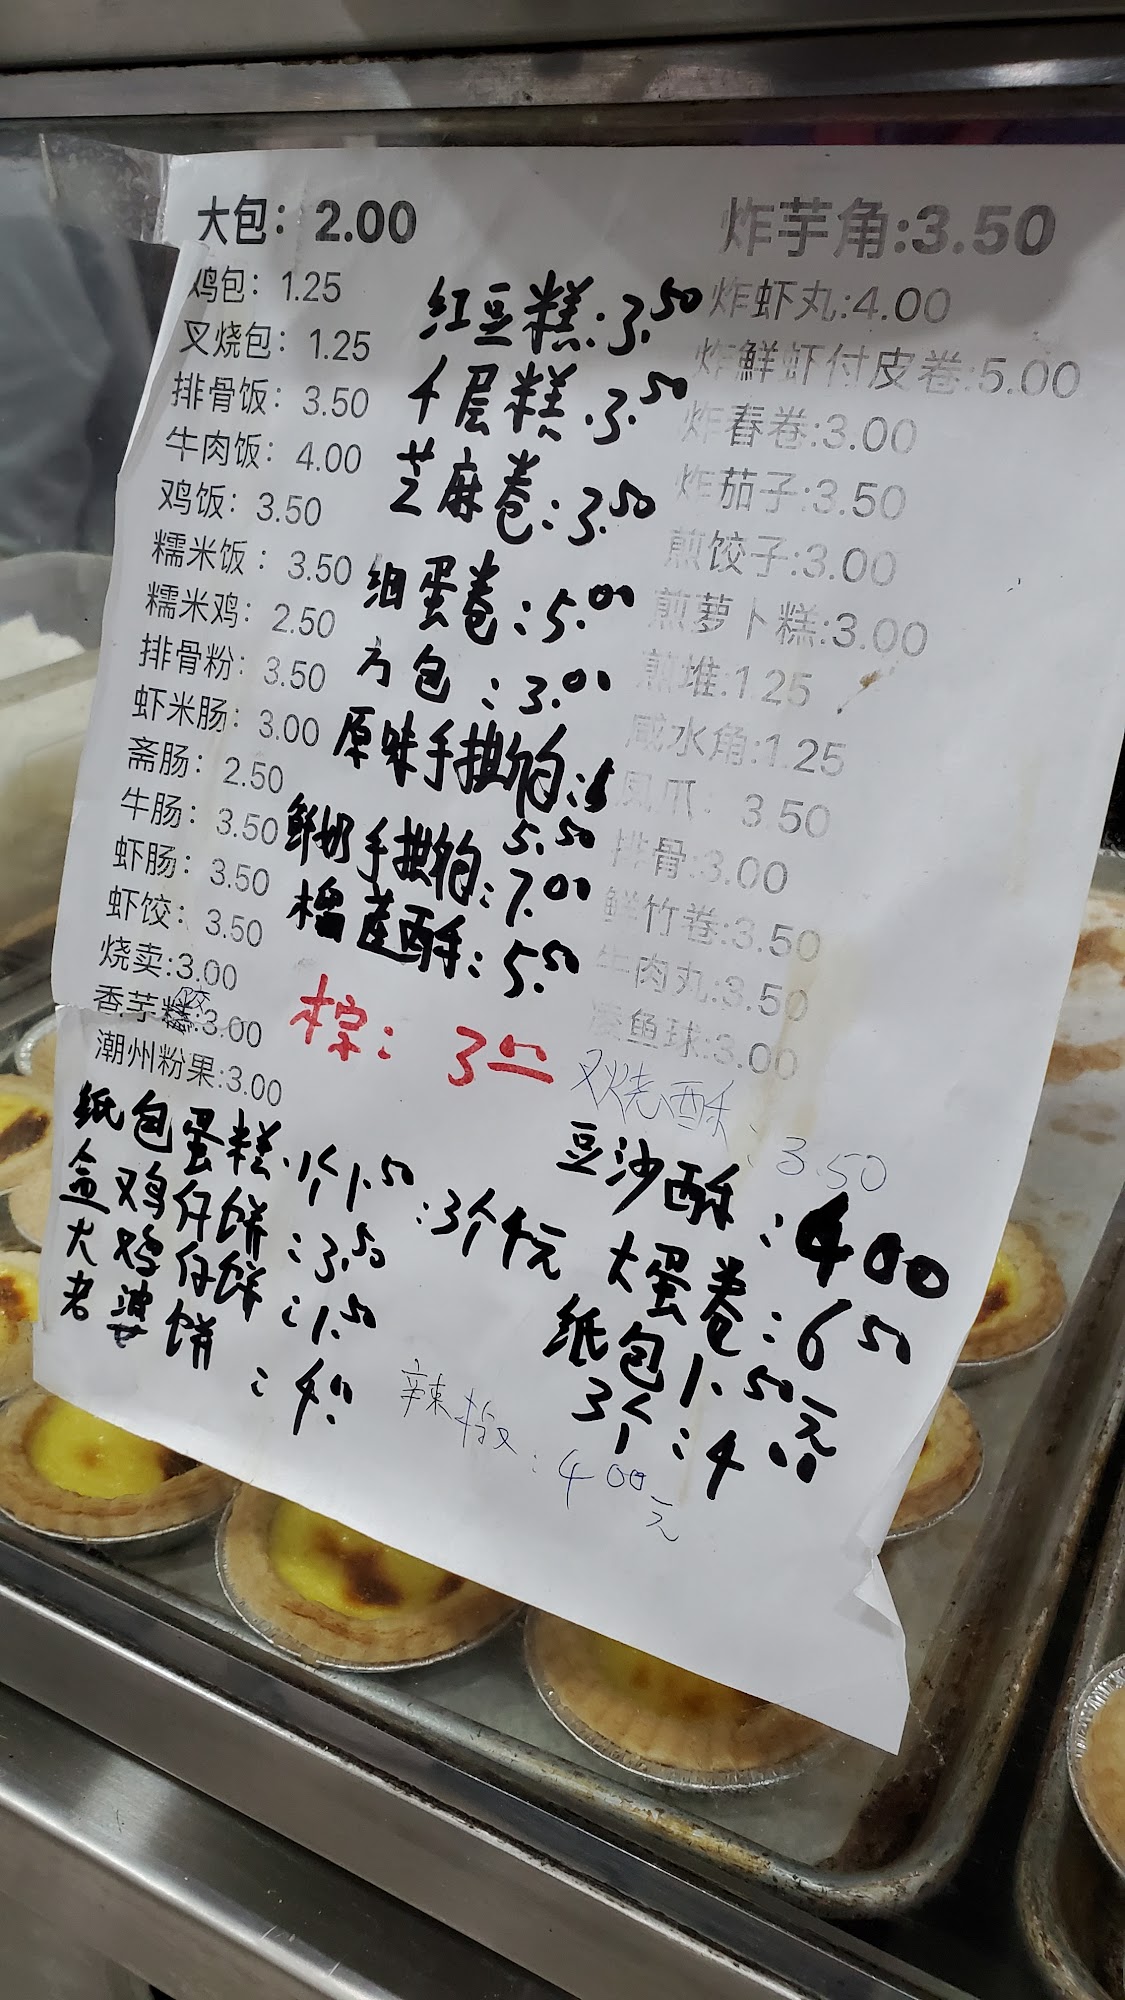 大包：2.00
鸡包：1.25
叉烧包：1.25
排骨饭：3.50
牛肉饭：4.00
鸡饭：3.50
糯米饭：3.50
糯米鸡：2.50
排骨粉：3.50
虾米肠：3.00
斋肠：2.50
牛肠：3.50
虾肠：3.50
虾饺：3.50
烧卖:3.00
香芋饺:3.00
潮州粉果:3.00
纸包蛋糕.1个1.50:3个4元
盒鸡仔饼:3.50
大鸡仔饼:1.50
老婆饼:4.00
红豆糕:3.50
千层糕.3.50
芝麻卷:3.50
细蛋卷:5.00
方包:3.00
原味手撕包:
5.50
鲜奶手撕包:7.00
榴莲酥:5.50
粽:3.50
炸芋角:3.50
炸虾丸:4.00
炸鲜虾付皮卷:5.00
炸春卷:3.00
炸茄子:3.50
煎饺子:3.00
煎萝卜糕:3.00
煎堆:1.25
咸水角:1.25
凤爪：3.50
排骨:3.00
鲜竹卷:3.50
牛肉丸:3.50
鱼球:3.00
叉烧酥:3.50
豆沙酥:4 00
大蛋卷:6 50
纸包1.50元
3个:4 00
辣椒:4 00元